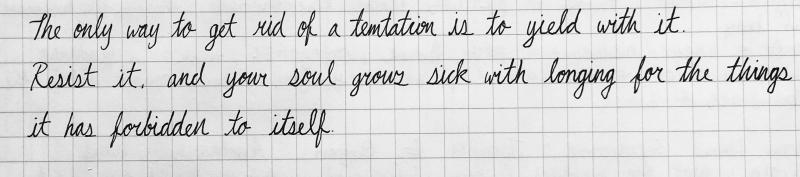 The only way to get rid of a temtation is to yield with it.
Resist it. and your soul grows sick with longing for the things
it has forbidden to itself.